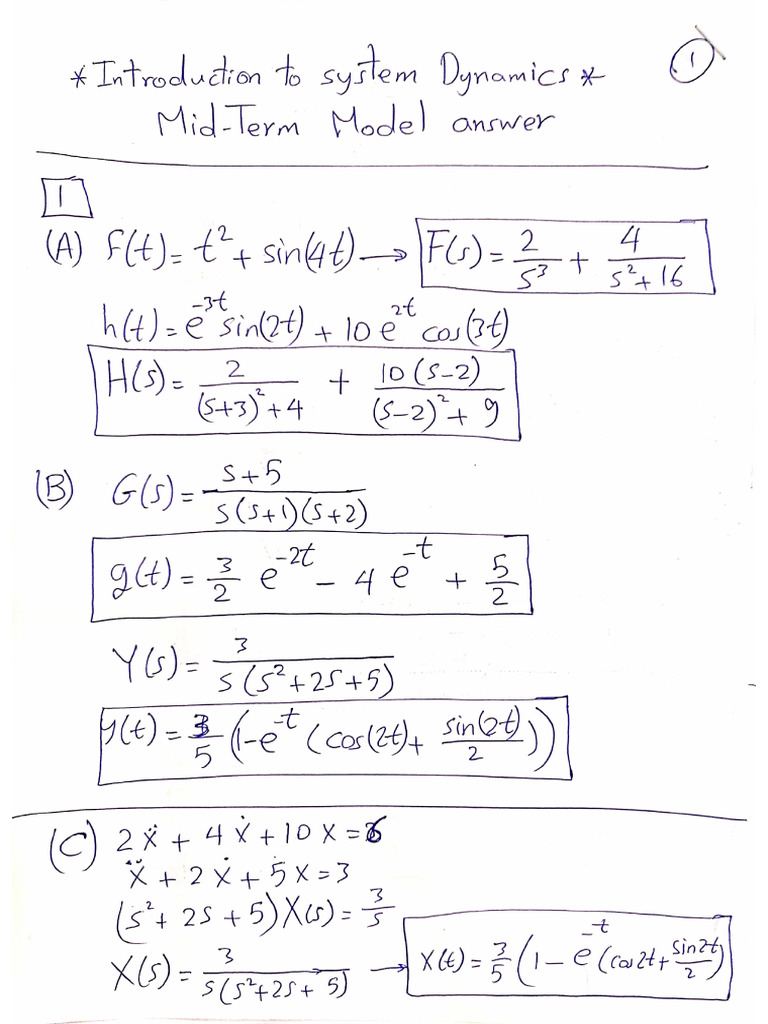 1
*Introduction to system Dynamics*
Mid-Term Model answer
1
(A) f(t) = t² + sin(4t) → F(s) = 2/s³ + 4/(s²+16)
h(t) = e^{-3t} sin(2t) + 10 e^{2t} cos(3t)
H(s) = 2/((s+3)²+4) + 10(s-2)/((s-2)²+9)
(B) G(s) = (s+5)/(s(s+1)(s+2))
g(t) = 3/2 e^{-2t} - 4 e^{-t} + 5/2
Y(s) = 3/(s(s²+2s+5))
y(t) = 3/5 (1-e^{-t} (cos(2t) + sin(2t)/2))
(C) 2ẍ + 4ẋ + 10x = 6
ẍ + 2ẋ + 5x = 3
(s² + 2s + 5)X(s) = 3/s
X(s) = 3/(s(s²+2s+5)) → x(t) = 3/5 (1 - e^{-t} (cos2t + sin2t/2))